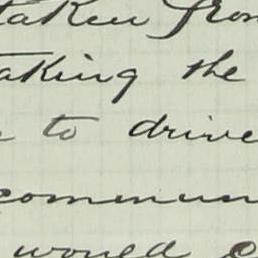 taken from
taking the
to drive
commun
would